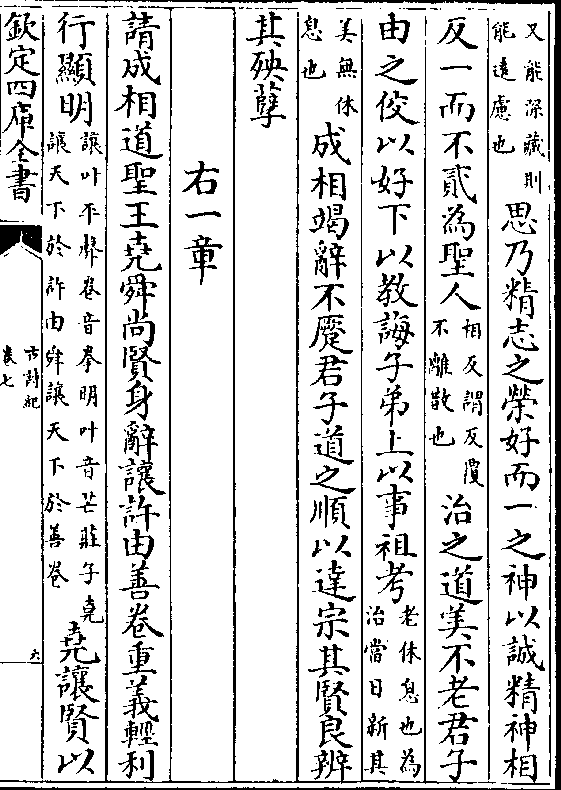 又能深藏則
能遠慮也
思乃精志之榮好而一之神以誠精神相
反一而不貳為聖人
相反謂反覆
不離散也
治之道美不老君子
由之佼以好下以教誨子弟上以事祖考
老休息也為
治當日新其
美無休
息也
成相竭辭不蹷君子道之順以達宗其賢良辨
其殃孽
右一章
請成相道聖王堯舜尚賢身辭讓許由善卷重義輕利
行顯明
讓叶平聲卷音拳明叶音芒莊子堯
讓天下於許由舜讓天下於善卷
堯讓賢以
欽定四庫全書
古詩紀
卷七
六